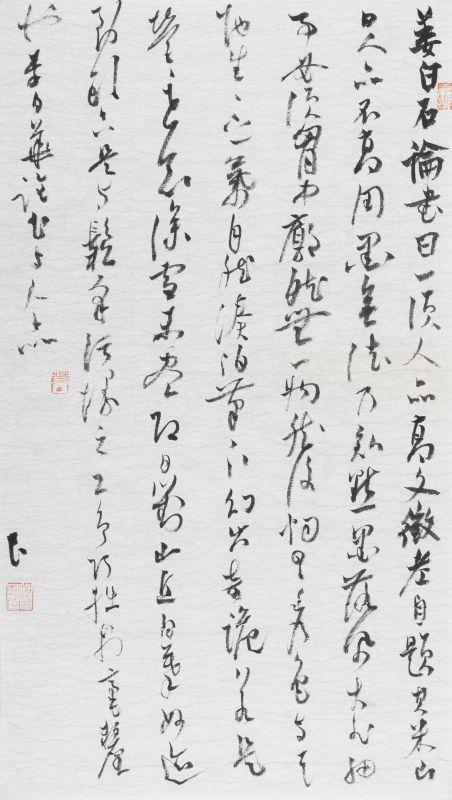 姜白石論書曰一須人品高文徵老自題其米山
曰人品不高用墨無法乃知點墨落紙大非細
事必須胸中廓然無一物然後烟雲秀色与天
地生生之氣自然湊泊筆下幻出奇詭若是
營營世念澡雪未盡即日對山丘日摹妙迹
到頭只是与髹采圬墁之工爭巧拙於毫釐
也李日華論書与人品